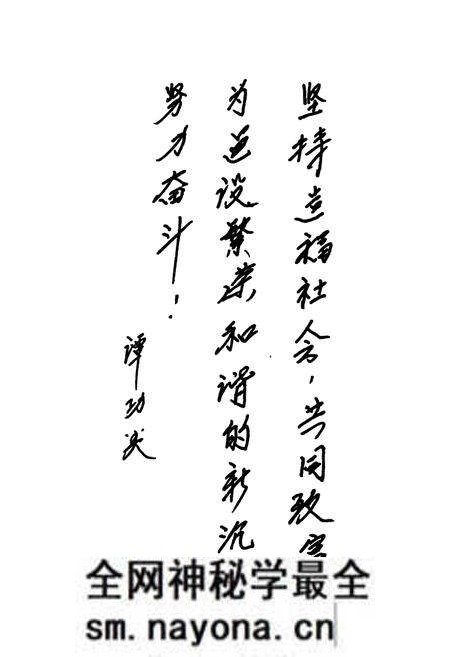 坚持造福社会，共同致富
为建设繁荣和谐的新沉
努力奋斗！
谭功炎
全网神秘学最全
sm.nayona.cn